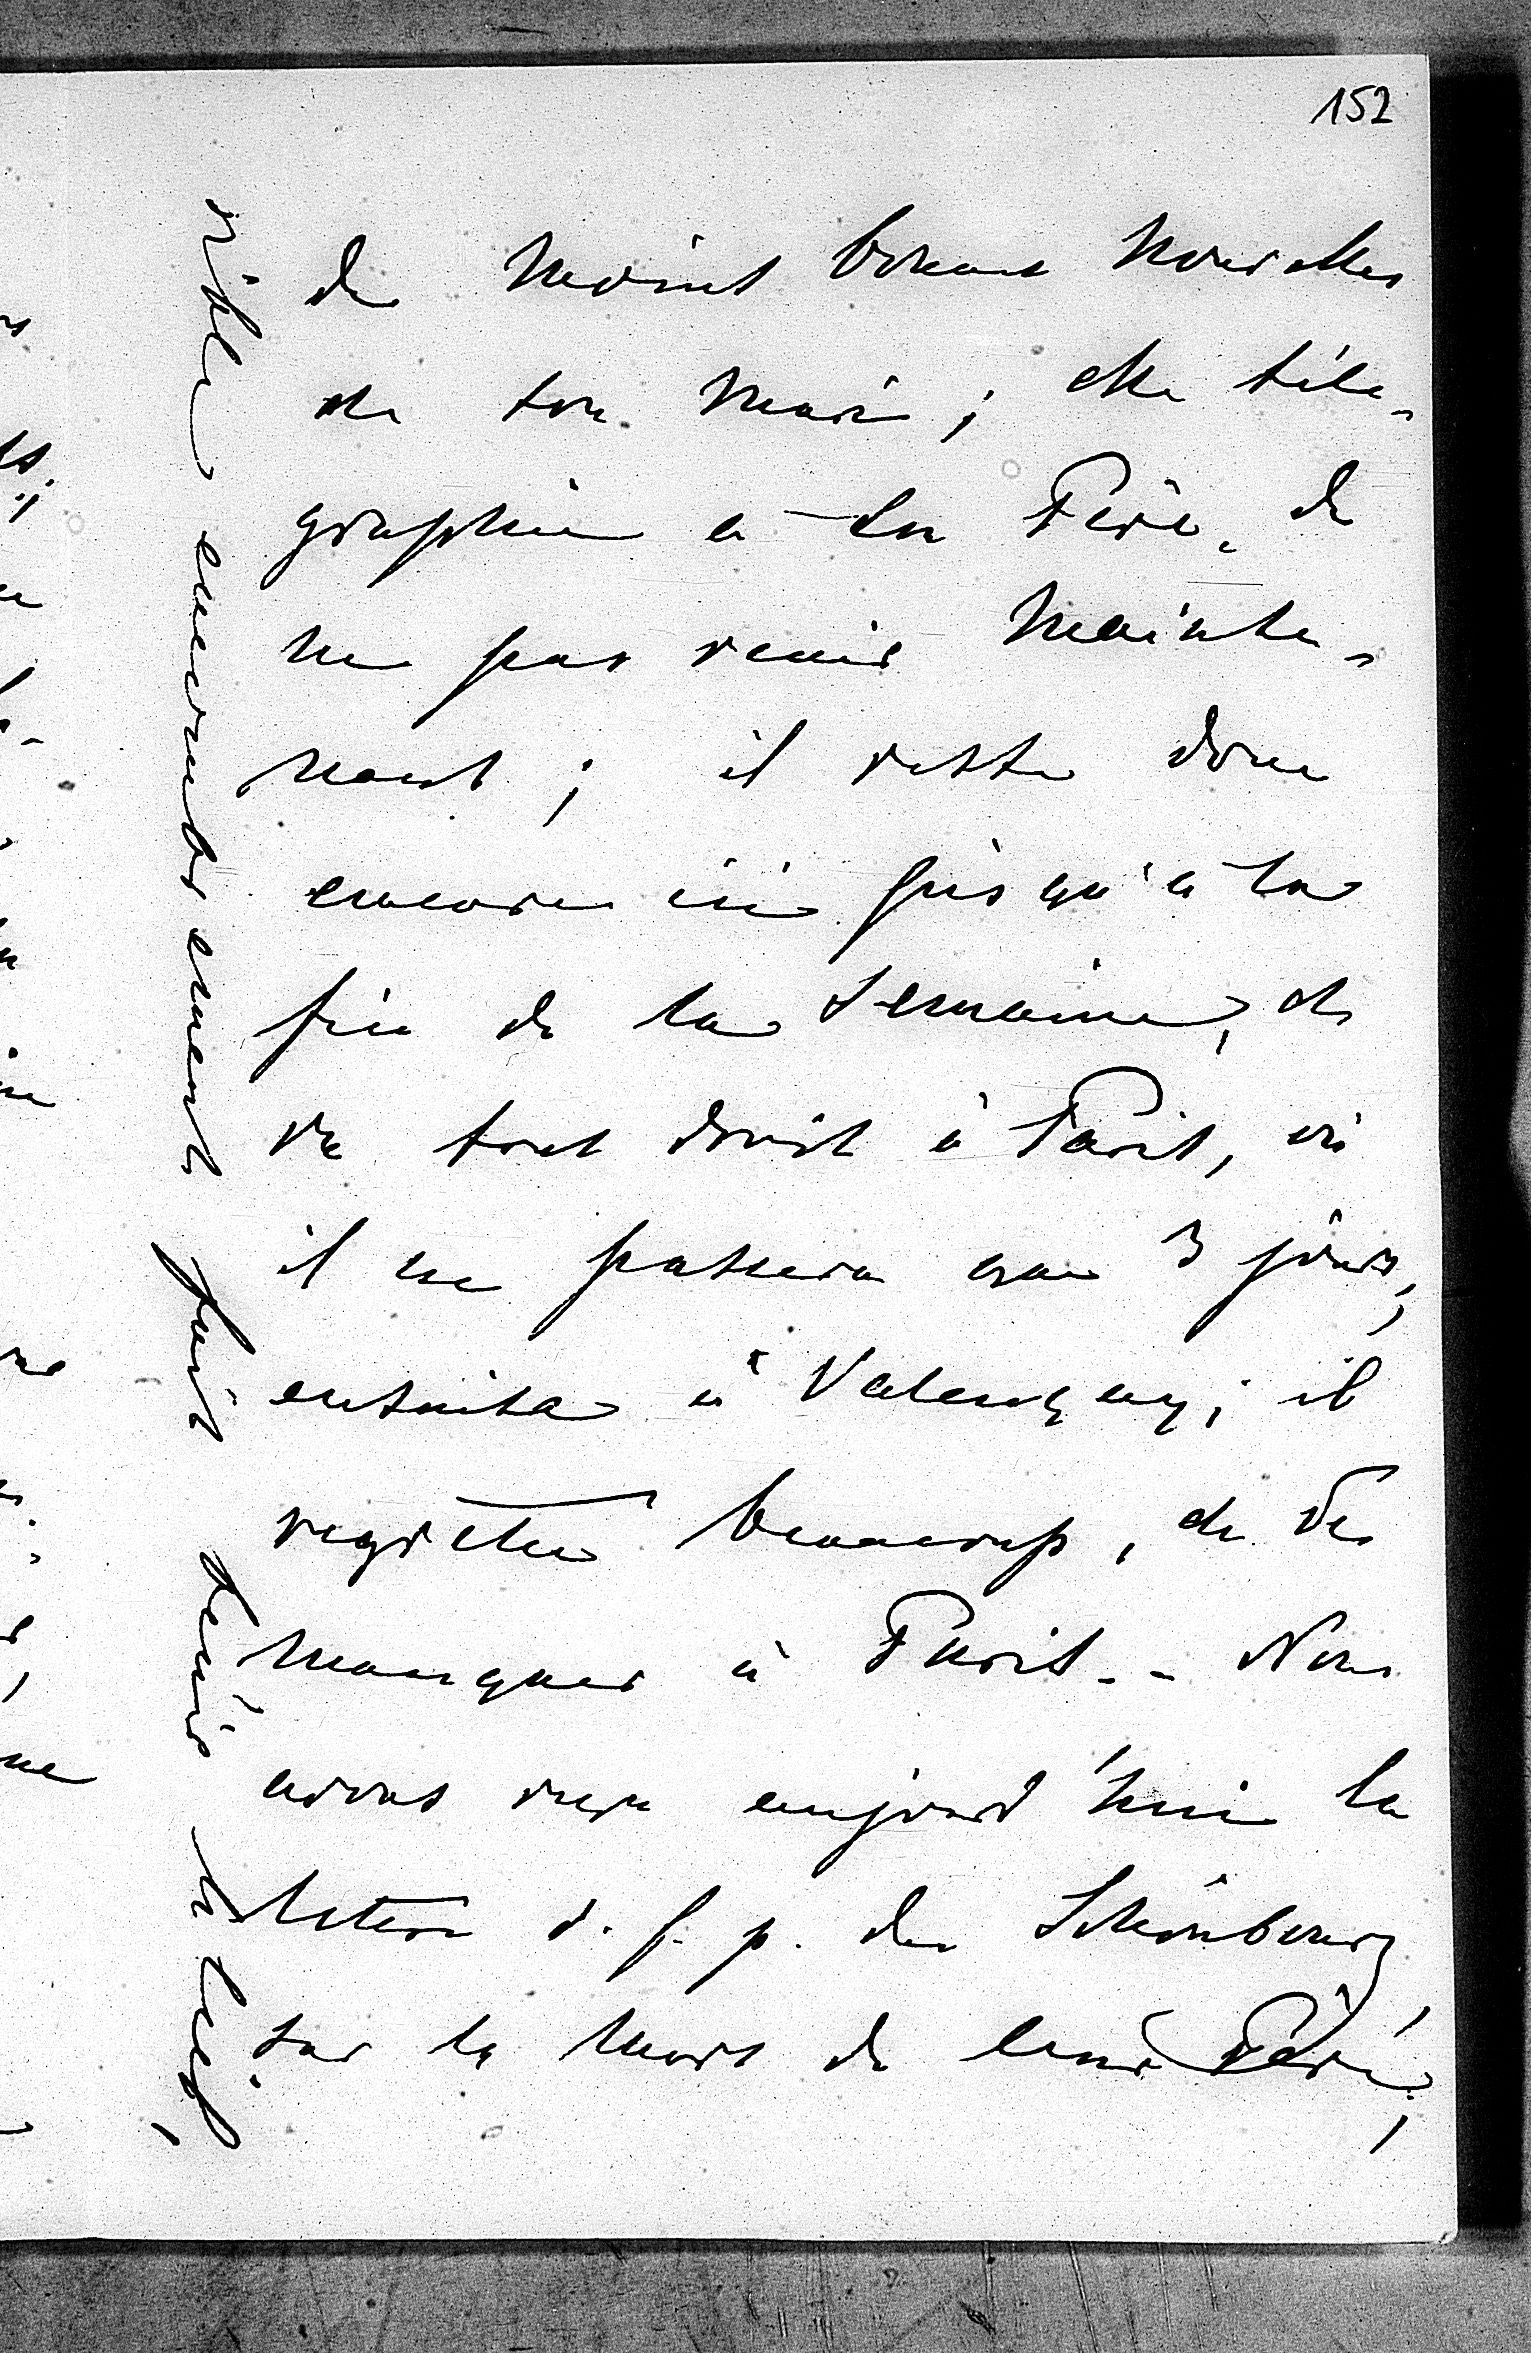 152
de moins bonnes nouvelles
de son mari; elle télé-
graphie à son Père, de
ne pas venir mainte-
nant; il reste donc
encore ici jusqu'à la
fin de la semaine, et
va tout droit à Paris, où
il ne passera que 3 jours,
ensuite à Valençay; il
regrette beaucoup, de Vous
manquer à Paris. - Nous
avons reçu aujourd'hui la
lettre d. f. p. des Schönburg
sur la mort de leur Père,